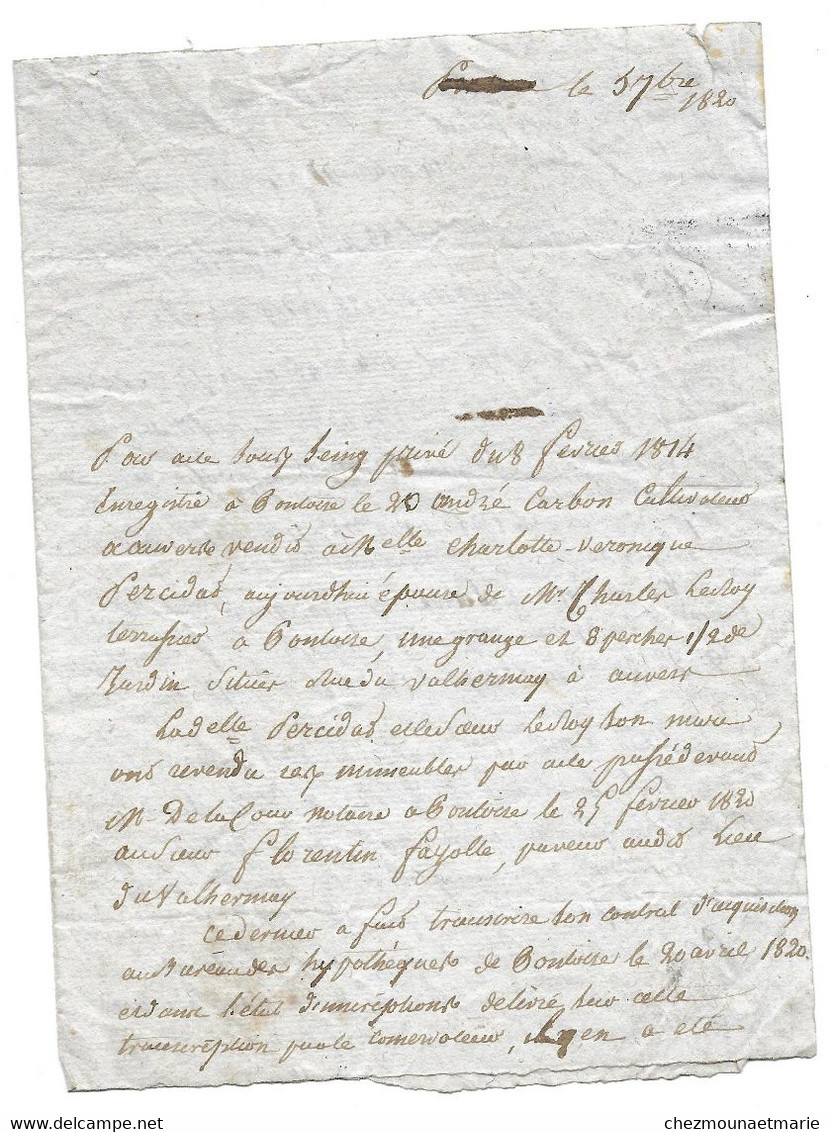 le 5 7bre
1820
Par acte sous seing privé du 8 fevrier 1814
Enregistré à Pontoise le 20 André Carbon Cultivateur
a auvers a vendu à Melle Charlotte Veronique
Percidas, aujourdhui épouse de Mr. Charles LeRoy
terrassier à Pontoise, une grange et 8 perches 1/2 de
Jardin situés Rue du Valhermay à auvers
La delle Percidas et le Sieur LeRoy son mari
ont revendu ces immeubles par acte passé devant
M. Delacour notaire a Pontoise le 25 fevrier 1820
au Sieur Florentin Fayolle, paveur audit Lieu
du Valhermay
Ce dernier a fait transcrire son contrat d'acquisition
au Bureau des hypothéques de Pontoise le 20 avril 1820.
et dans l'état d'inscriptions delivré sur cette
transcription par le conservateur, il y en a été
chezmounaetmarie